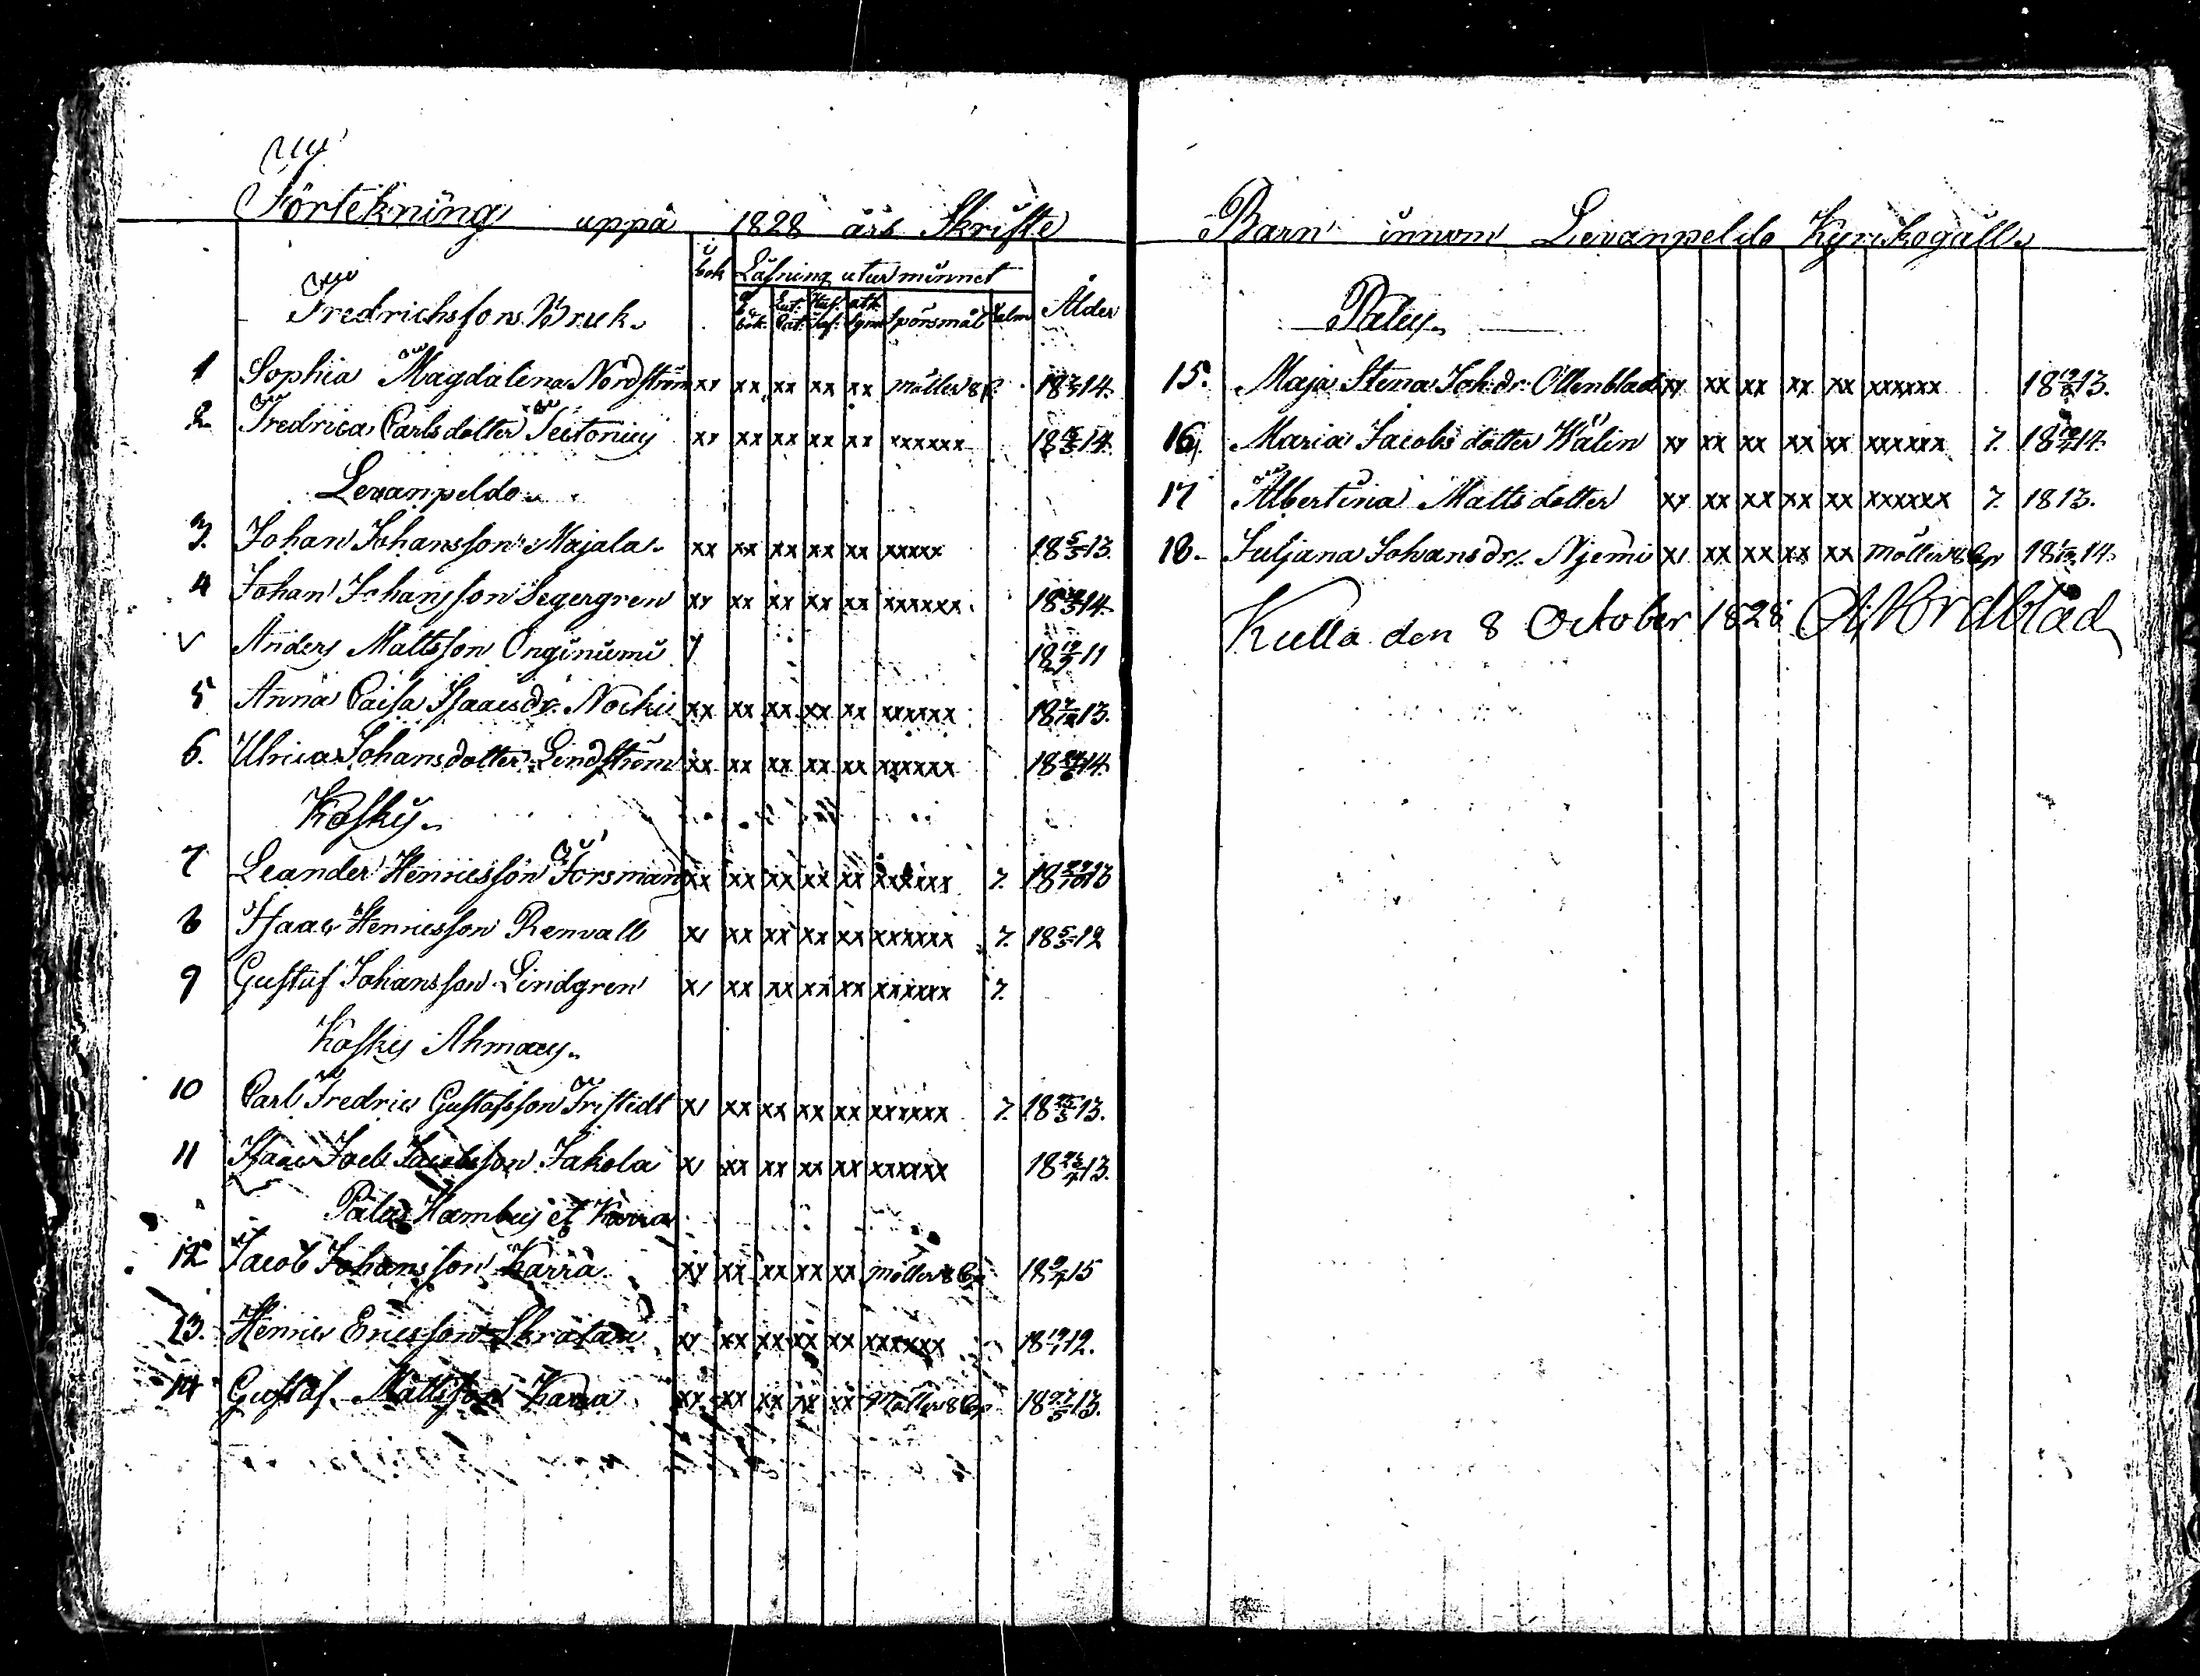 Förtekning uppå 1828 års Skrifte
i bok Läsning utur minnet Ålder
Fredrichsfors Bruk.
1 Sophia Magdalena Nordström xx xx xx xx xx Möller 8 1814.
2. Fredrica Carlsdotter Tectonius xx xx xx xx xx xxxxxx 1814.
Levanpeldo.
3. Johan Johansson Majala. xx xx xx xx xx xxxxx 18 5/3 13.
4 Johan Johansson Segergren xx xx xx xx xx xxxxxx 1814.
v Anders Mattsson Onginiemi 1811
5 Anna Caisa Isaacsdr. Nocki xx xx xx xx xx xxxxxx 1813.
6. Ulrica Johansdotter Lindström xx xx xx xx xx xxxxxx 1814.
Koskis.
7 Leander Henricsson Forsman xx xx xx xx xx xxxxxx 7. 18 29/10 13
8 Isaac Henricsson Renvall x xx xx xx xx xxxxxx 7. 18 5/3 12
9 Gustaf Johansson Lindgren x xx xx xx xx xxxxxx 7.
Koskis Ahmaus.
10 Carl Fredric Gustafsson Fristedt x xx xx xx xx xxxxxx 7. 18 25/3 13.
11 Isaac Joel Jacobsson Jakola x xx xx xx xx xxxxxx 18 23/7 13.
Palus Hambus et Karra
12 Jacob Johansson Karra xx xx xx xx xx Möller 8 1815
13. Henric Ericsson xx xx xx xx xx xxxxxx 1812.
14 Gustaf Mattsson Karra xx xx xx xx xx Möller 8 18 27/5 13.
Barn innom Levanpeldo Kyrkogäll.
Palus.
15. Maja Stena Joh.dr. Ollenblad xx xx xx xx xx xxxxxx 1813.
16. Maria Jacobsdotter Wälin xx xx xx xx xx xxxxxx 7. 1814.
17 Albertina Mattsdotter xx xx xx xx xx xxxxxx 7. 1813.
18. Juljana Johansdr. Njemi x xx xx xx xx Möller 8 1814.
Kulla den 8 October 1828 Nordblad